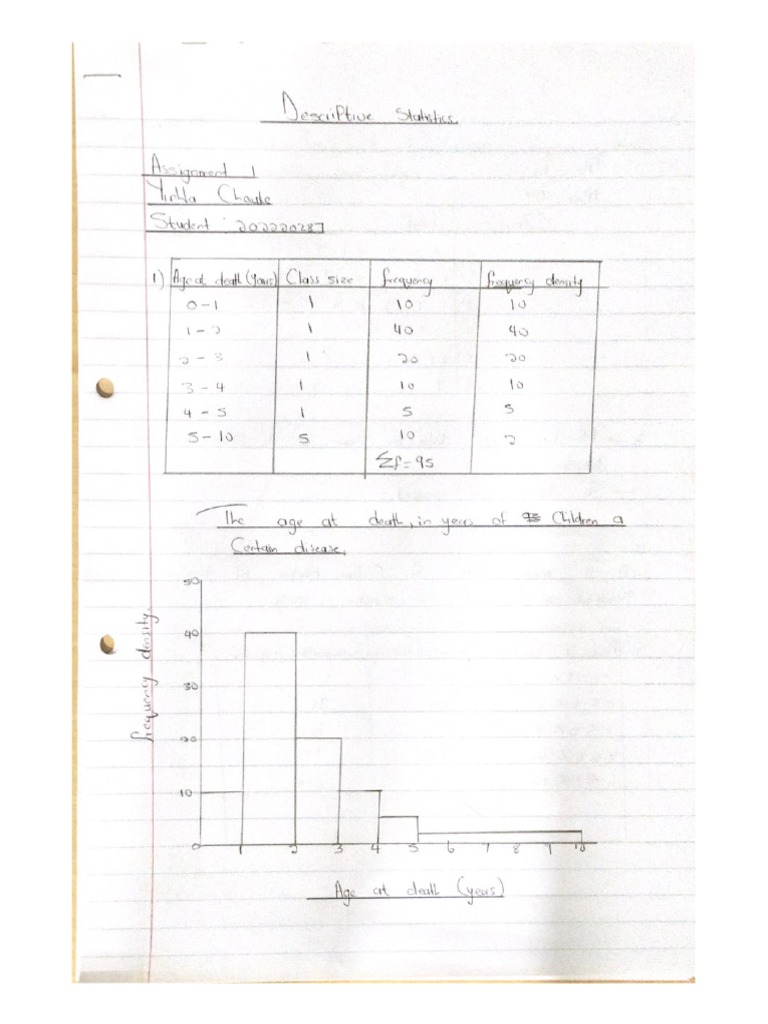 Descriptive Statistics
Assignment 1
Student : 202220287
1) Age at death (years) Class size frequency frequency density
0-1 1 10 10
1-2 1 40 40
2-3 1 20 20
3-4 1 10 10
4-5 1 5 5
5-10 5 10 2
Σf=95
The age at death, in years of Children a
Certain disease.
frequency density.
50
40
30
20
10
0 1 2 3 4 5 6 7 8 9 10
Age at death (years)